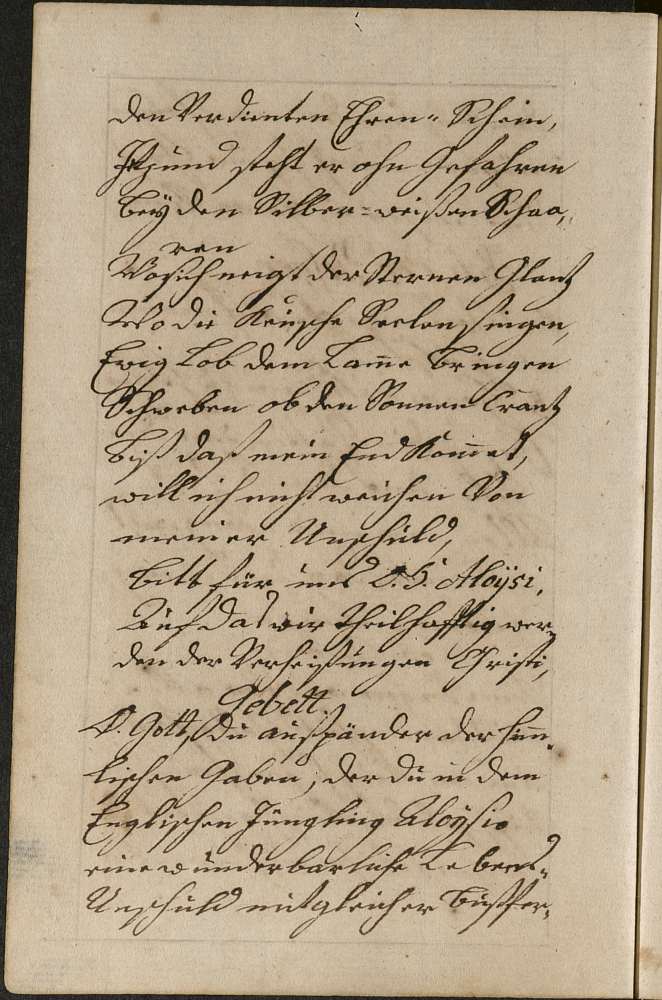 den Verdienten Ehren-Schein,
Jetzund steht er ohn Gefahren
bey den Silber-weißen Schaa,
ren
Wo sich neigt der Sternen Glantz
Wo die Keusche Seelen singen,
Ewig Lob dem Lam̄e bringen
Schweben ob den Sonnen Crantz
biß daß mein End Kom̄et,
will ich nicht weichen Von
meiner Unschuld,
bitt für uns O. H. Aloÿsi,
Auf das wir theilhafftig wer,
den der Verheißungen Christi,
Gebett.
O. Gott, du außspänder der him̄,
lischen Gaben, der du in dem
Englischen Jüngling Aloÿsio
eine wunderbarliche Lebens-
Unschuld mit gleicher bußfer,